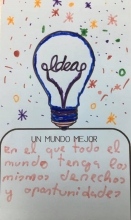 Ideas
UN MUNDO MEJOR
en el que todo el
mundo tenga los
mismos derechos
y oportunidades